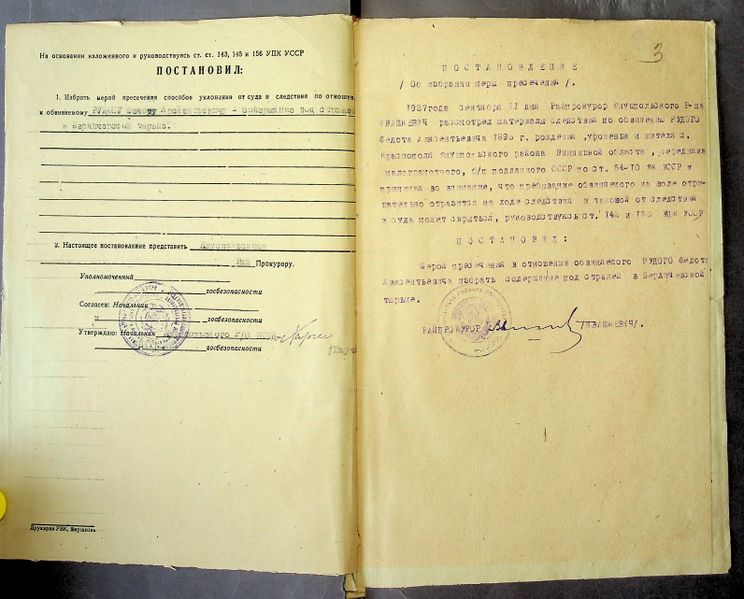 На основании изложенного и руководствуясь ст. ст. 143, 145 и 156 УПК УССР
ПОСТАНОВИЛ:
1. Избрать мерой пресечения способов уклонения от суда и следствия по отношен.
к обвиняемому РУДОМУ Федоту Авксентьевичу - содержание под стражей
в Бердичевской тюрьме.
2. Настоящее постановление представить Янушпольскому
Рай Прокурору.
Уполномоченный
госбезопасности
Согласен: Начальник
и госбезопасности
Утверждаю: Начальник
госбезопасности
Друкарня РВК, Янушпіль
3
ПОСТАНОВЛЕНИЕ
/Об избрании меры пресечения/.
1937года сентября 11 дня Райпрокурор Янушпольского Р-на
ИВАШКЕВИЧ рассмотрел материалы следствия по обвинению РУДОГО
Федота Авксентьевича 1895 г. рождения, уроженца и жителя с.
Краснополя Янушпольского района Винницкой области, середняка
малограмотного, б/п подданного СССР по ст. 54-10 УК УССР и
принимая во внимание, что пребывание обвиняемого на воле отри-
цательно отразится на ходе следствия и таковой от следствия
и суда может скрыться, руководствуясь ст. 143 и 156 УПК УССР
ПОСТАНОВИЛ:
Мерой пресечения в отношении обвиняемого РУДОГО Федота
Авксентьевича избрать содержание под стражей в Бердичевской
тюрьме.
РАЙПРОКУРОР /ИВАШКЕВИЧ/.